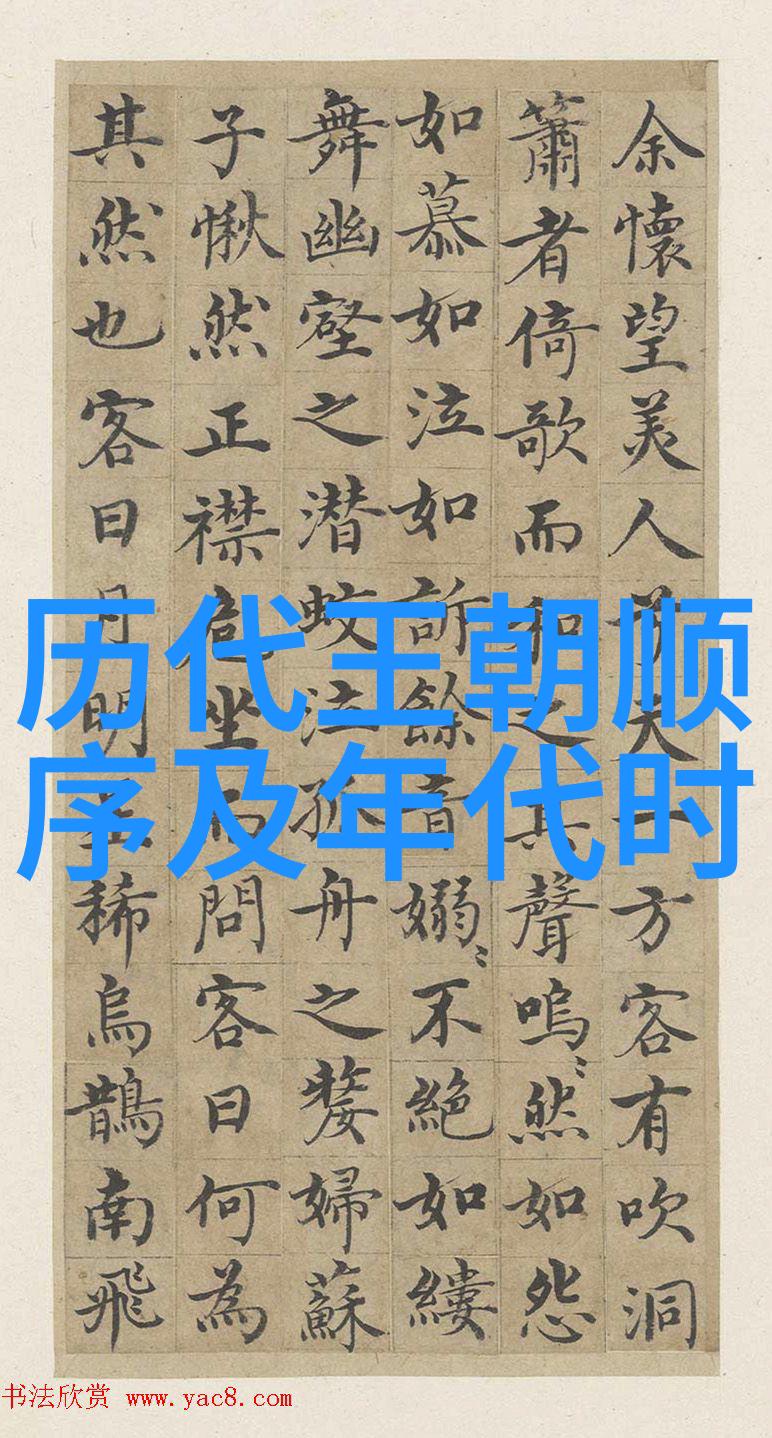 余懷望美人兮天一方客有吹洞
簫者倚歌而和之其聲嗚〻然如怨
如慕如泣如訴餘音嫋〻不絶如縷
舞幽壑之潜蛟泣孤舟之嫠婦蘇
子愀然正襟危坐而問客曰何為
其然也客曰月明星稀烏鵲南飛
历代王朝顺
序及年代时
书法欣赏 www.yac8.com